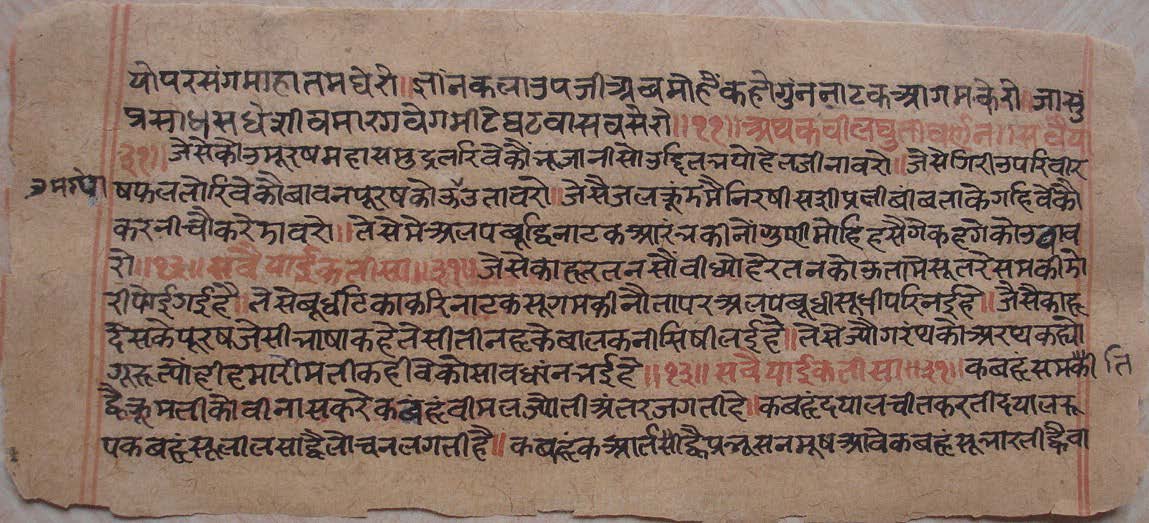 योपरसंगमाहातमघेरो॥ ज्ञांनकलाउपजीअबमोहैंकहौगुंननाटकआगमकेरो॥ जासुं
त्रसाधसधेशीवमारगवेगमीटेघटवासवसेरो॥११॥ अथकवीलघुतावर्णन॥ सवैया
३१॥ जैसेकोउमूरषमहासमुद्रतरिवेकौंभूजानीसोउद्दितभयोहेतजीनावरो॥ जैसेगिरीउपरिवीर
षफलतोरिवेकौबावनपूरषकोऊउतावरो॥ जैसैजलकूंडमैनिरषीससीप्रतीबींबताकेगहिवेकौ
करनीचौकरेडावरो॥ तेसेमेअलपबूद्धिनाटकआरंभकीनौंगुणीमोहिहसैगेकहगेकोउबाव
रो॥१२॥ सवैयाईकतीसा॥३१॥ जैसेकाहूरतनसौंवीध्योहेरतनकोऊतामेसूतरेसमकीडो
रीपोईगईहै॥ तैसेबूधटिकाकरिनाटकसूगमकीनौतापरअलपबुधीसूधीपरिनईहै॥ जैसैकाहू
देसकेपूरषजैसीभाषाकहैतैसीतीनहूकेबालकनीसिषीलईहै॥ तैसेज्यौगरंथकोअरथकह्यो
गुरूत्यौंहीहमारीमतीकहीवेकोसावधांनभईहै॥१३॥ सवैयाईकतीसा॥३१॥ कबहूंसमकीति
ह्वैकूमतीकौवीनासकरेकबहूंवीमलज्योतीअंतरजगतीहै॥ कबहूंदयालचीतकरतीदयालरू
पकबहूंसूलालसाह्वैलोचनलगतीहै॥ कबहूंकआरतीह्वैप्रभूसनमूषआवेकबहूंसूभारतीह्वैवा